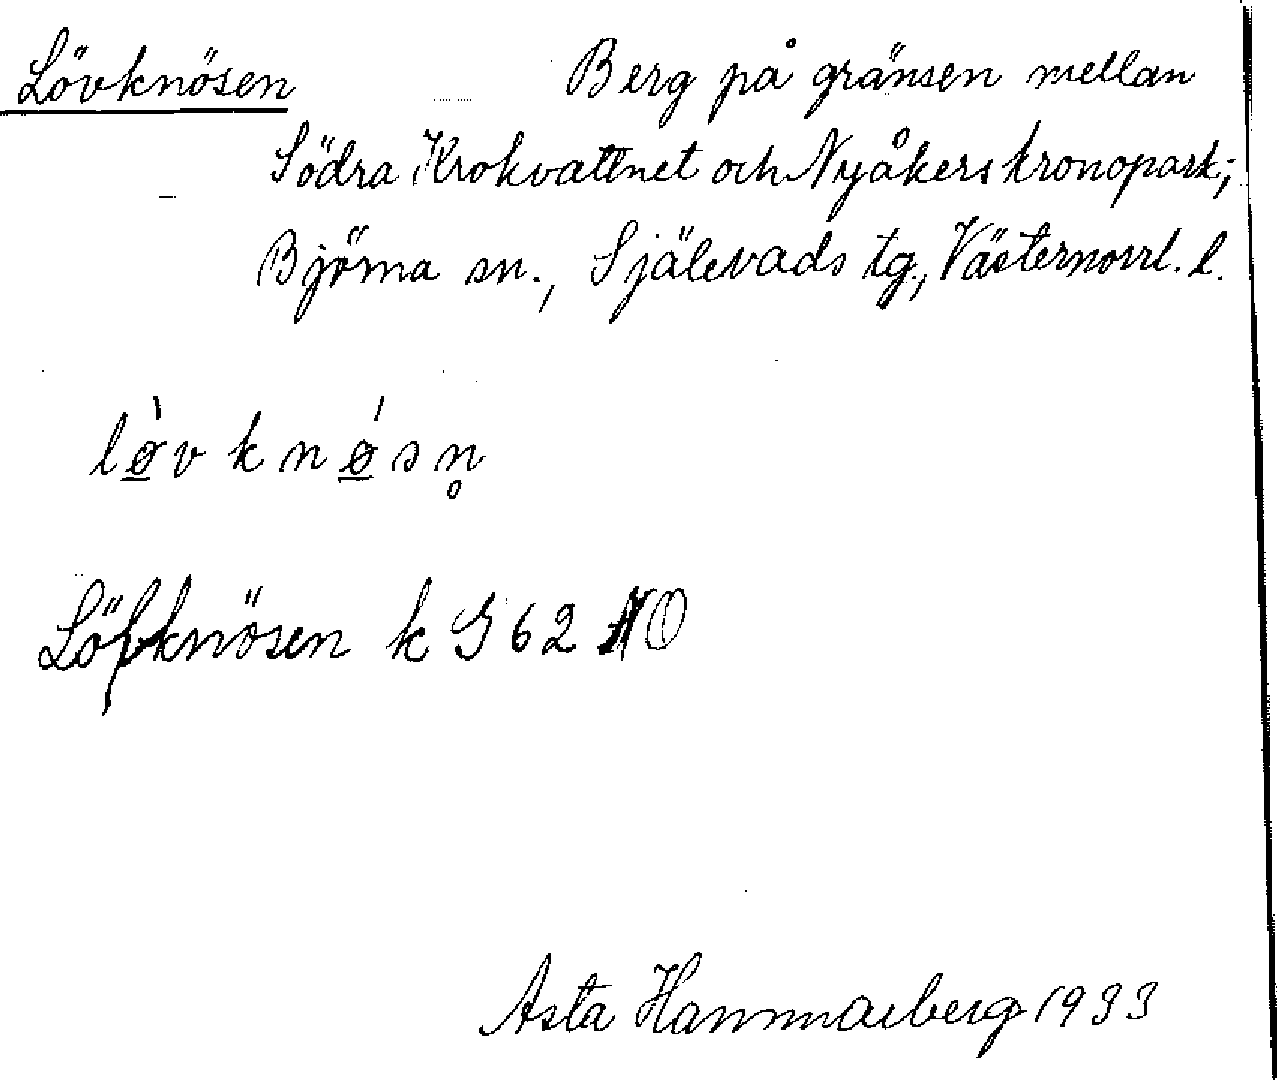 Lövknösen Berg på gränsen mellan
Södra Krokvattnet och Nyåkers kronopark;
Björna sn., Själevads tg., Västernorrl. l.
lø̲̀vknǿ̲sn̥
Löfknösen k G 62 NO
Asta Hammarberg 1933